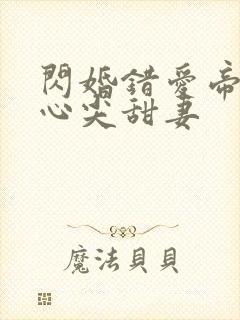 閃婚錯愛帝
心尖甜妻
魔法貝貝